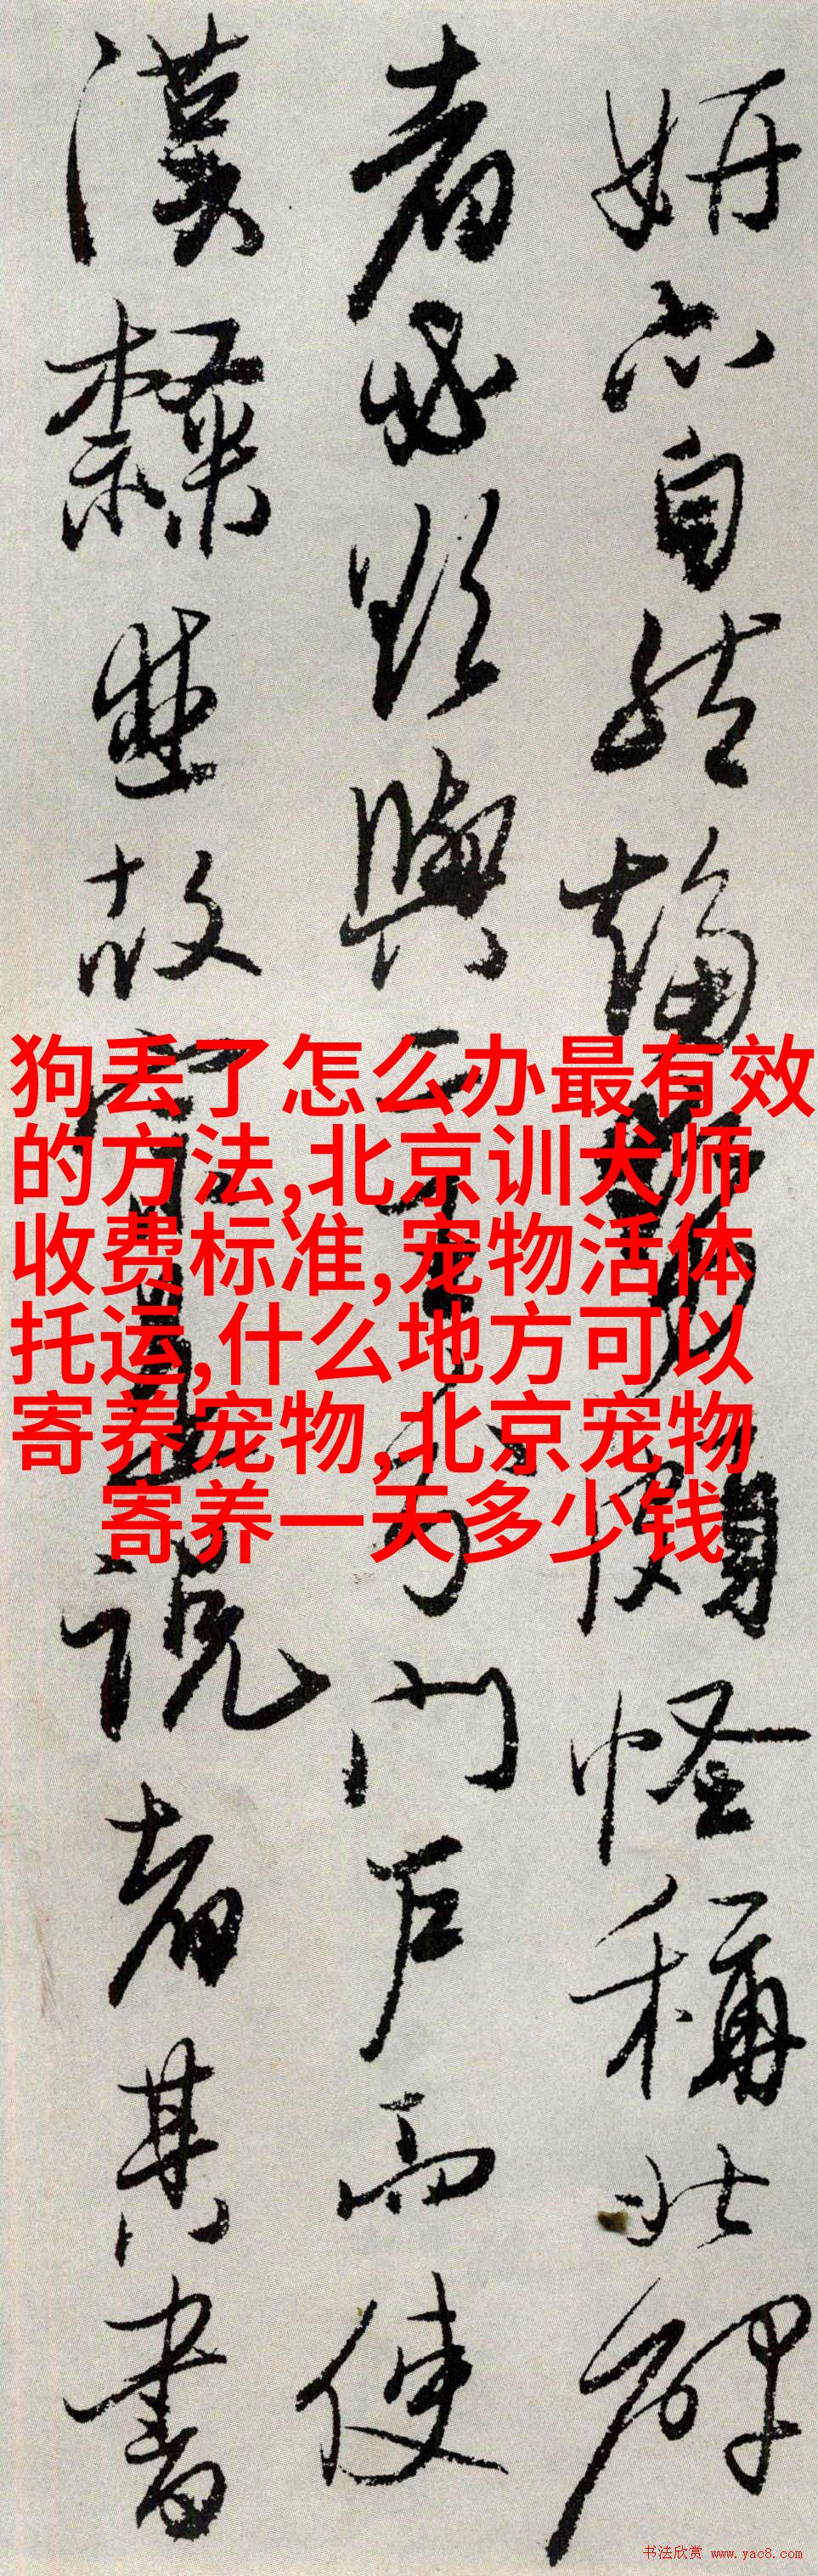 妍亦自然頗怪稱北碑
者必欲與二王門戶而使
漢隸故說者其書
狗丢了怎么办最有效
的方法,北京训犬师
收费标准,宠物活体
托运,什么地方可以
寄养宠物,北京宠物
寄养一天多少钱
书法欣赏 www.yac8.com